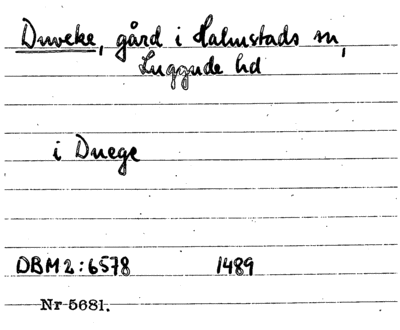 Duveke, gård i Halmstads sn,
Luggude hd
i Duege
DBM 2:6578 1489
Nr 5681.